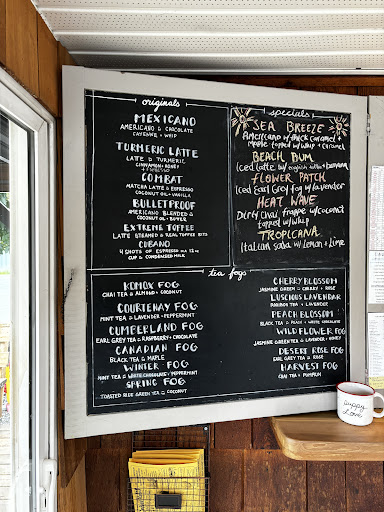 originals
MEXICANO
AMERICANO & CHOCOLATE
CAYENNE + WHIP
TURMERIC LATTE
LATTE & TURMERIC
CINNAMON + HONEY
COMBAT
MATCHA LATTE & ESPRESSO
COCONUT OIL + VANILLA
BULLETPROOF
AMERICANO BLENDED &
COCONUT OIL + BUTTER
EXTREME TOFFEE
LATTE STEAMED & REAL TOFFEE BITS
CUBANO
4 SHOTS OF ESPRESSO IN A 12oz
CUP & CONDENSED MILK
specials
SEA BREEZE
Americano w/ thick caramel +
Maple topped w/ whip + caramel
BEACH BUM
Iced Latte w/ english toffee + banana
FLOWER PATCH
Iced Earl Grey fog w/ lavender
HEAT WAVE
Dirty Chai frappe w/ coconut
topped w/ whip
TROPICANA
Italian soda w/ Lemon + Lime
tea fogs
KOMOX FOG
CHAI TEA & ALMOND + COCONUT
COURTENAY FOG
MINT TEA & LAVENDER + PEPPERMINT
CUMBERLAND FOG
EARL GREY TEA & RASPBERRY + CHOCOLATE
CANADIAN FOG
BLACK TEA & MAPLE
WINTER FOG
MINT TEA & WHITE CHOCOLATE/PEPPERMINT
SPRING FOG
TOASTED RICE GREEN TEA & COCONUT
CHERRY BLOSSOM
JASMINE GREEN & CHERRY + ROSE
LUSCIOUS LAVENDAR
ROOIBOS TEA & LAVENDER
PEACH BLOSSOM
BLACK TEA & PEACH + WHITE CHOCOLATE
WILD FLOWER FOG
JASMINE GREEN TEA & LAVENDER + HONEY
DESERT ROSE FOG
EARL GREY TEA & ROSE
HARVEST FOG
CHAI TEA & PUMPKIN
puppy
Love